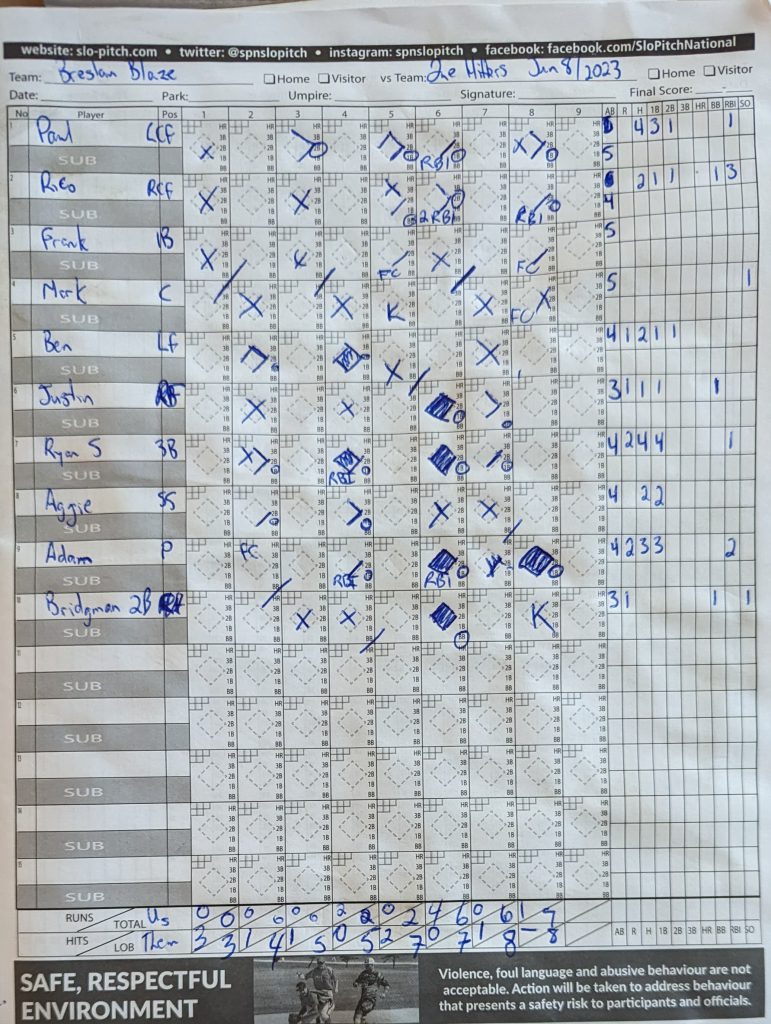 website: slo-pitch.com • twitter: @spnslopitch • instagram: spnslopitch • facebook: facebook.com/SloPitchNational
Team: Breslau Blaze Home Visitor vs Team: Jun 8/2023 Home Visitor
Date: Park: Umpire: Signature: Final Score:
No Player Pos 1 2 3 4 5 6 7 8 9 AB R H 1B 2B 3B HR BB RBI SO
1 Paul LCF 4 3 1 1
SUB RBI 5
2 Rico RCF 2 1 1 1 3
SUB 2 RBI RBI 4
3 Frank 1B 5
SUB FC FC
4 Mark C 5 1
SUB K FC
5 Ben LF 4 1 2 1 1
SUB
6 Justin 3 1 1 1 1
SUB
7 Ryan S 3B 4 2 4 4 1
SUB RBI
8 Aggie SS 4 2 2
SUB
9 Adam P FC 4 2 3 3 2
SUB RBI RBI
10 Bridgman 2B 3 1 1 1
SUB K
11
SUB
12
SUB
13
SUB
14
SUB
15
SUB
RUNS TOTAL Us 0 0 0 0 0 0 2 2 0 2 4 6 0 6 1 7
HITS LOB Them 3 3 1 4 1 5 0 5 2 7 0 7 1 8 - 8 AB R H 1B 2B 3B HR BB RBI SO
SAFE, RESPECTFUL
ENVIRONMENT
Violence, foul language and abusive behaviour are not
acceptable. Action will be taken to address behaviour
that presents a safety risk to participants and officials.